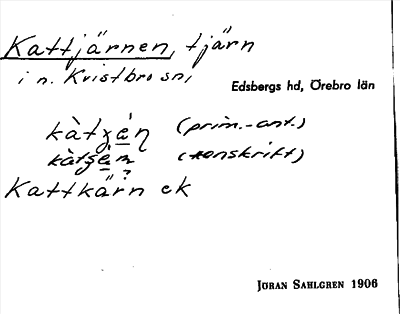 Kattjärnen, tjärn
i n. Kvistbro sn,
Edsbergs hd, Örebro län
(prim.-ant.)
(tonskrift)
Kattkärn ek
JÖRAN SAHLGREN 1906